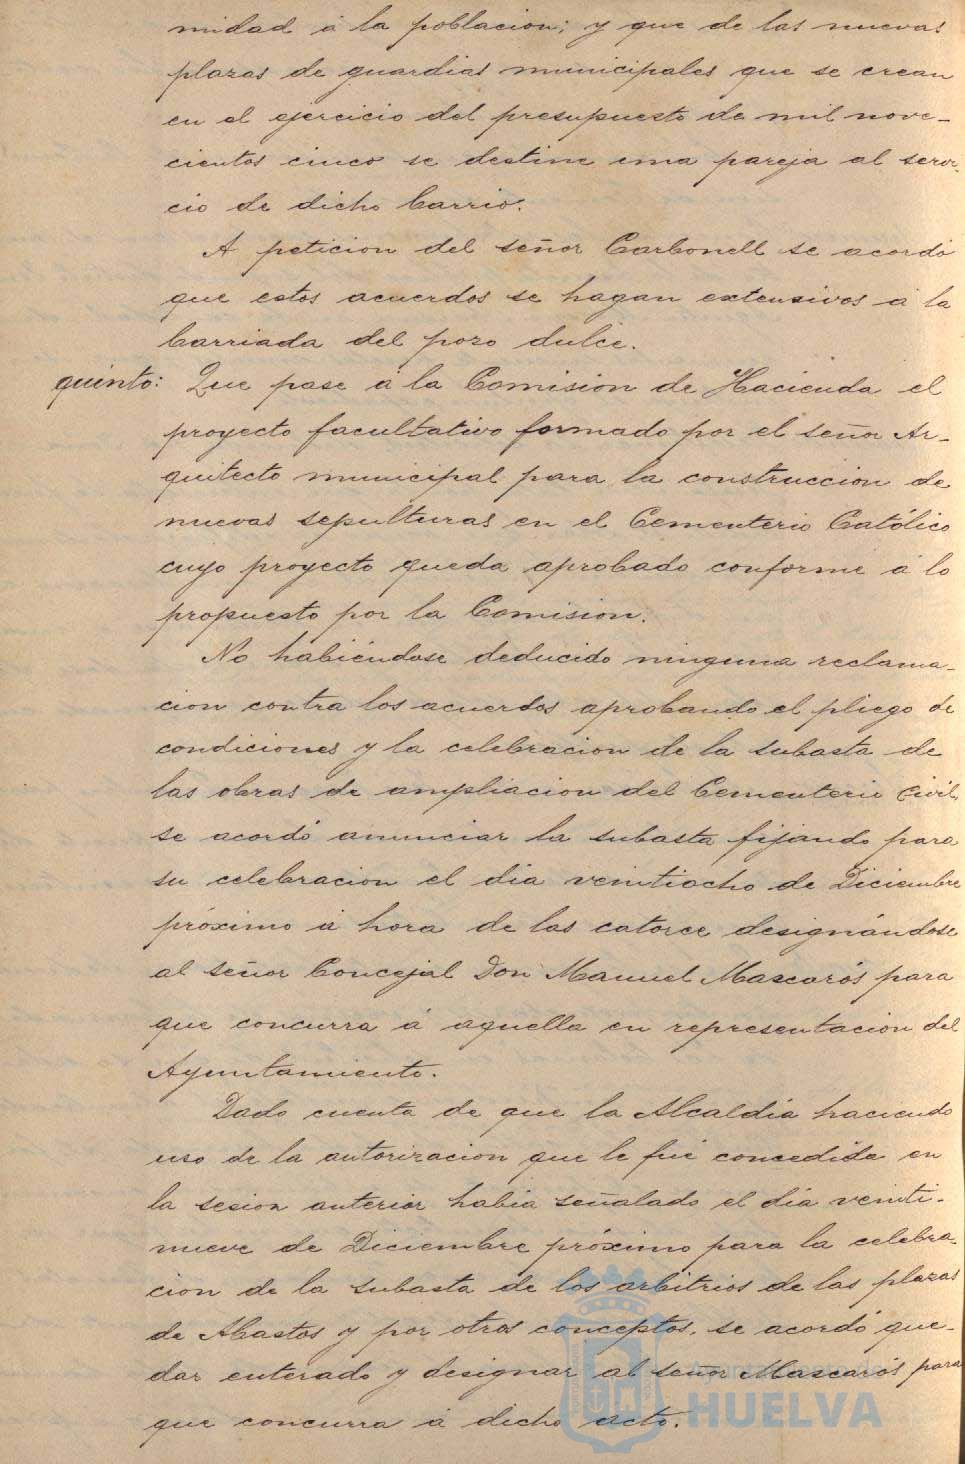 midad á la poblacion; y que de las nuevas
plazas de guardias municipales que se crean
en el ejercicio del presupuesto de mil nove-
cientos cinco se destine una pareja al servi-
cio de dicho barrio.
A peticion del señor Carbonell se acordó
que estos acuerdos se hagan extensivos á la
barriada del pozo dulce.
quinto: Que pase á la Comision de Hacienda el
proyecto facultativo formado por el señor Ar-
quitecto municipal para la construccion de
nuevas sepulturas en el Cementerio Católico
cuyo proyecto queda aprobado conforme á lo
propuesto por la Comision.
No habiéndose deducido ninguna reclama-
cion contra los acuerdos aprobando el pliego de
condiciones y la celebracion de la subasta de
las obras de ampliacion del Cementerio Civil,
se acordó anunciar la subasta fijando para
su celebracion el dia veintiocho de Diciembre
próximo á hora de las catorce designándose
al señor Concejal Don Manuel Mascarós para
que concurra á aquella en representacion del
Ayuntamiento.
Dado cuenta de que la Alcaldía haciendo
uso de la autorizacion que le fué concedida en
la sesion anterior habia señalado el dia veinti-
nueve de Diciembre próximo para la celebra-
cion de la subasta de los arbitrios de las plazas
de Abastos y por otros conceptos, se acordó que-
dar enterado y designar al señor Mascarós para
que concurra á dicho acto.
Ayuntamiento de
HUELVA